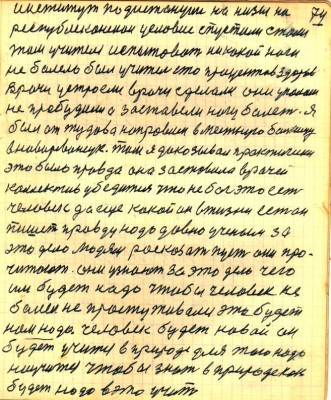 74
институт по дистанции на низы на
республиканском условие спустили стали
этом учителе испытовать никакой ноги
не болело был учитель сто процентов здоров
Врачи устроели врачи сделали они
не пробудили а заставели ногу болет. Я
был от тудова направлен в
Там я доказывал практически
это было правда она заставила врачей
коллектив убедится что не бог это есть
человек да еще какой он в жизни есть он
пишет правду надо давно ученым за
это дело людям росказать пуст они про-
читают. они узнают за это дело чего
им будет надо чтобы человек не
болел не простуживалси это будет
нам надо. человек будет новай он
будет учител в природе для того надо
научится чтобы знат в природе
будет надо в это учит